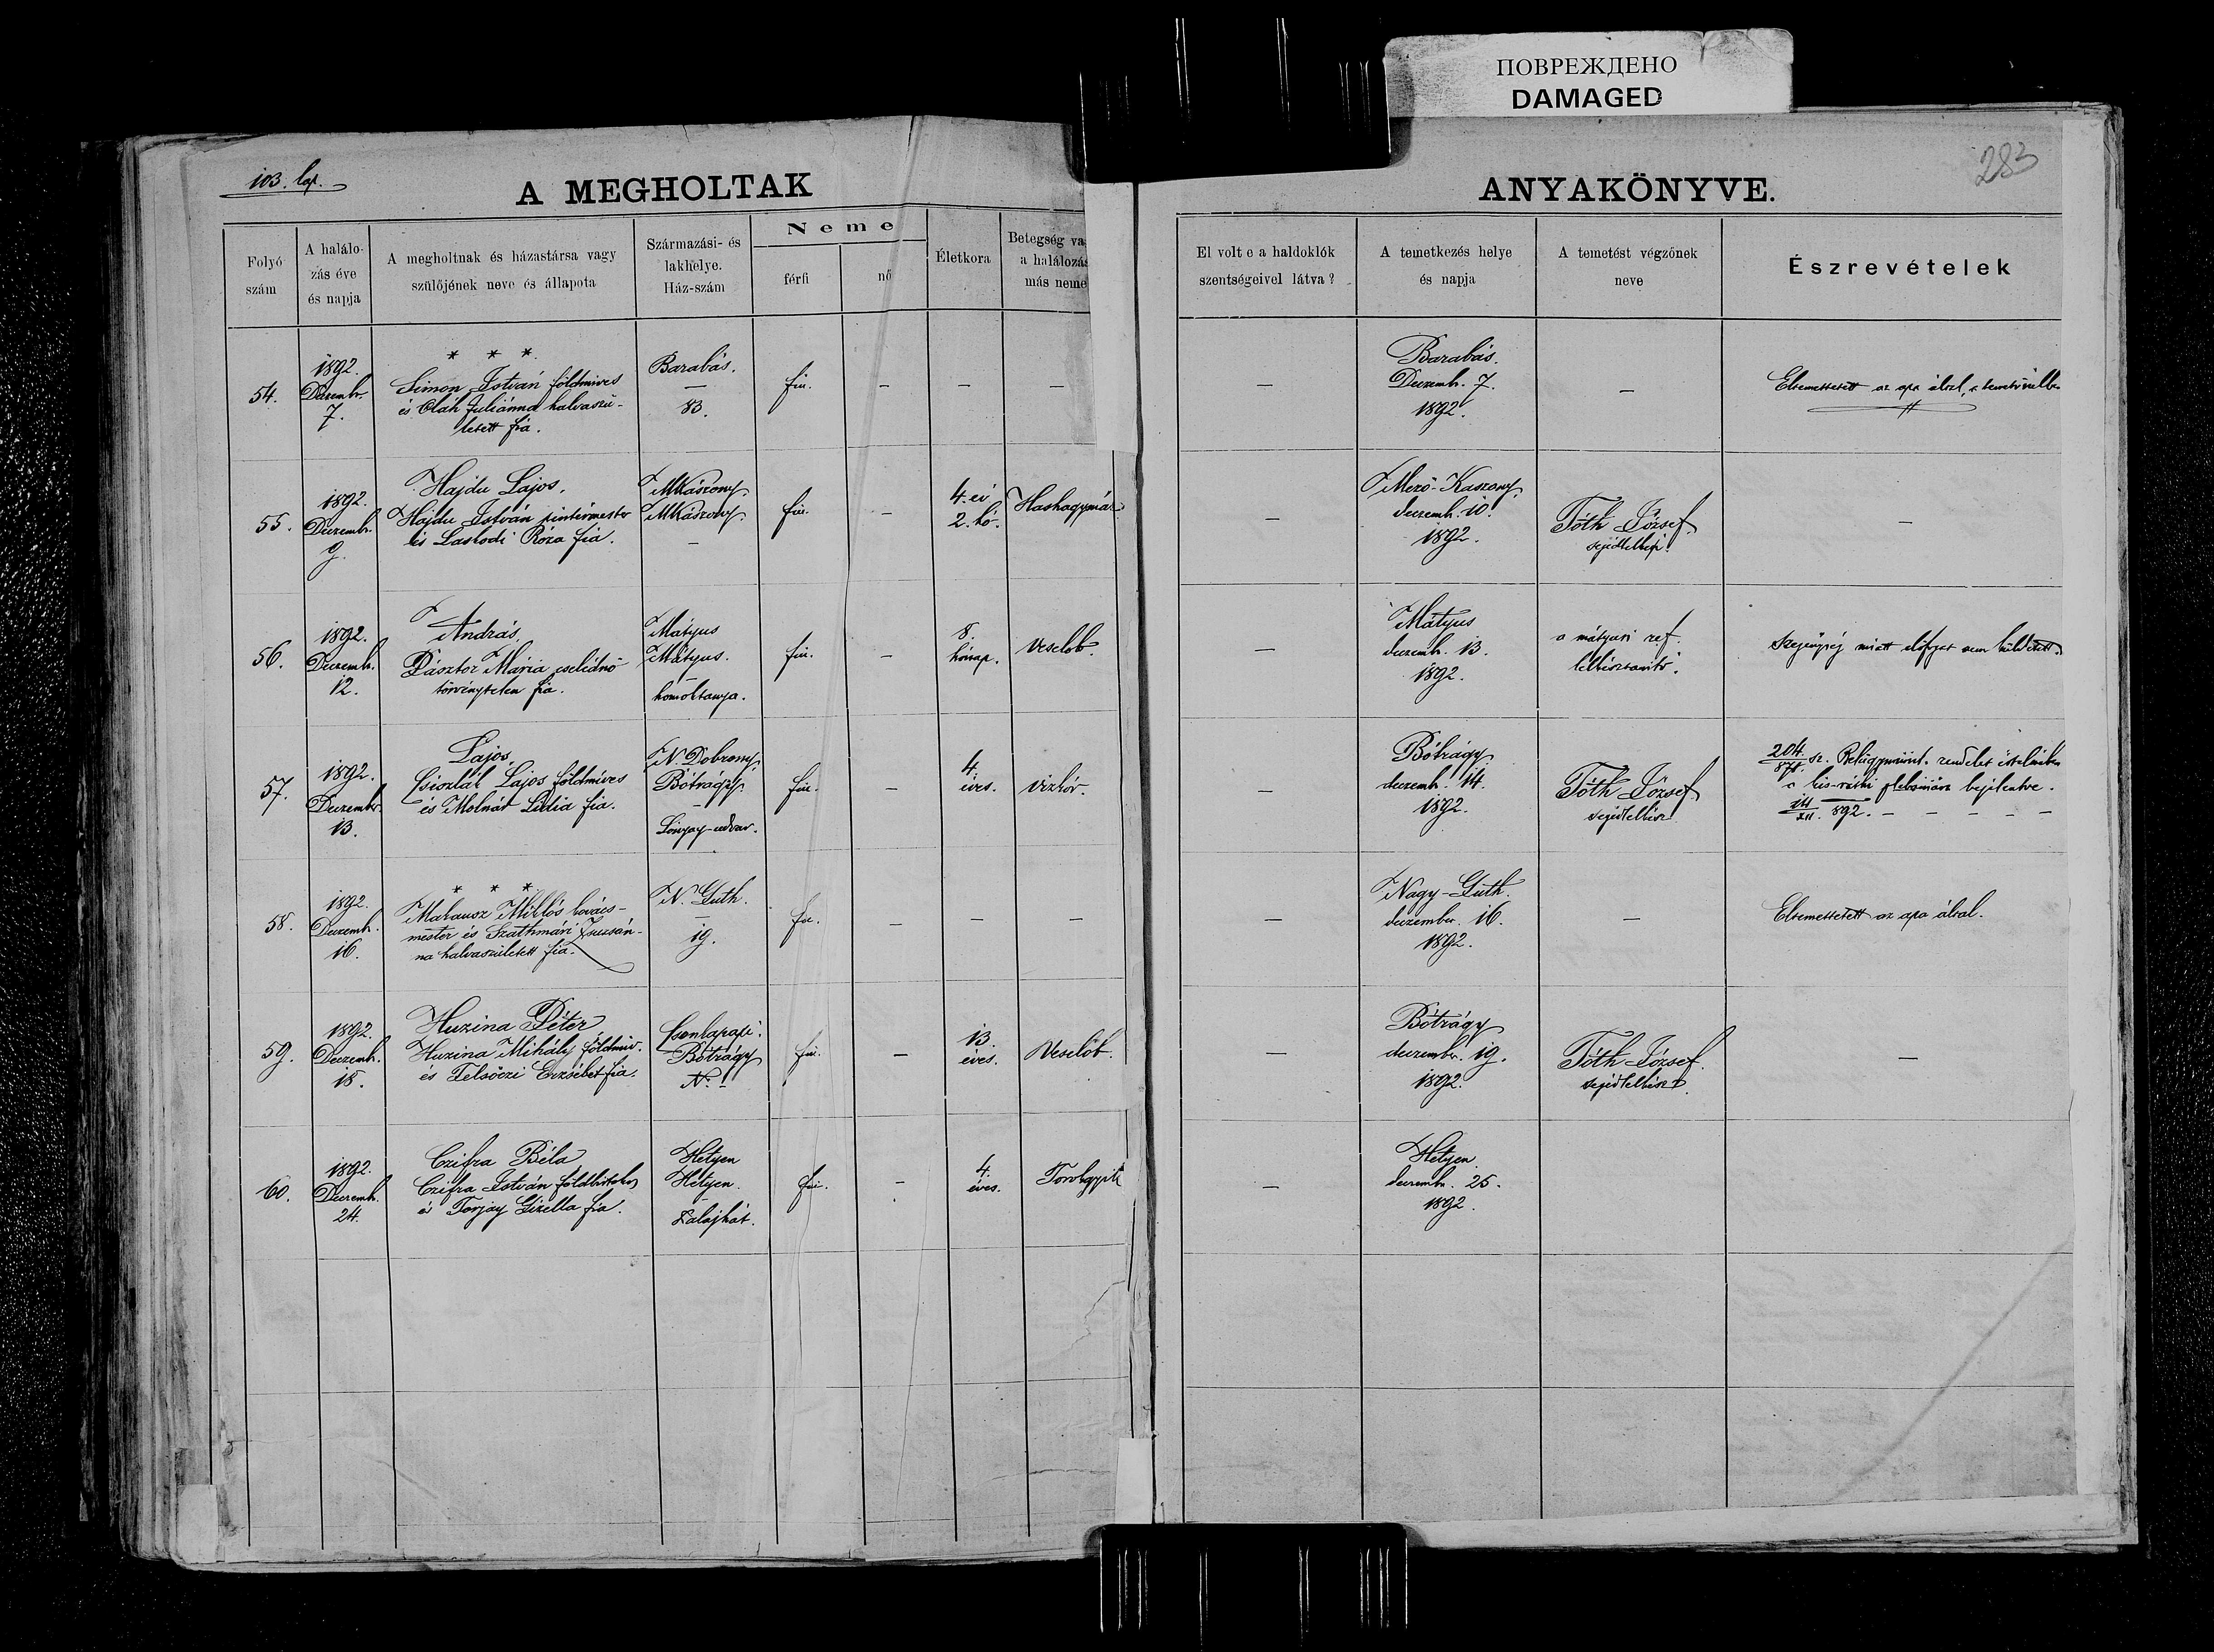 ПОВРЕЖДЕНО
DAMAGED
103. lap.
283
A MEGHOLTAK
ANYAKÖNYVE.
Folyó szám
A halálozás éve és napja
A megholtnak és házastársa vagy szülőjének neve és állapota
Származási- és lakhelye. Ház-szám
Neme
férfi
nő
Életkora
Betegség va
a halálozás
más neme
El volt e a haldoklók szentségeivel látva?
A temetkezés helye és napja
A temetést végzőnek neve
Észrevételek
54.
1892.
Dezemb.
7.
* * *
Simon István földmives
és Oláh Juliánna halvaszü-
letett fia.
Barabás.
—
83.
fiu.
—
—
—
—
Barabás.
Dezemb. 7.
1892.
—
Eltemettetett az apa által, a
55.
1892.
Dezemb.
9.
Hajdu Lajos,
Hajdu István pintérmester
és Laskodi Róza fia.
MKászony.
MKászony.
—
fiu.
—
4. év
2. hó.
Hashagymáz
—
Mező-Kaszony.
dezemb. 10.
1892.
Tóth József
—
56.
1892.
Dezemb.
12.
András,
Pásztor Mária cselédnő
törvénytelen fia.
Mátyus
Mátyus.
—
homoktanya.
fiu.
—
8.
hónap.
Veselob.
—
Mátyus
dezemb. 13.
1892.
a mátyusi ref.
Szegénység miatt előfogat nem küldetett.
57.
1892.
Dezembr.
13.
Lajos,
Lajos földmives
és Molnár Lidia fia.
N. Dobrony.
Bótrágy.
—
Lónyay-udvar.
fiu.
—
4.
éves.
vizkór.
—
Bótrágy
dezemb. 14.
1892.
Tóth József
segédlelkész
204./871. sz. Belügyminist. rendelet értelmében
a bejelentve.
14/XII. 892. — — — — —
58.
1892.
Dezemb.
16.
* * *
Makausz Miklós kovács-
mester és Szathmári Zsuzsán-
na halvaszületett fia.
N. Guth.
—
19.
fiu.
—
—
—
—
Nagy-Guth.
dezember. 16.
1892.
—
Eltemettetett az apa által.
59.
1892.
Dezemb.
18.
Huzina Péter
Huzina Mihály földmiv.
és Felsőczi Erzsébet fia.
Csonkapapi.
Bótrágy
N: 1
fiu.
—
13.
éves.
Veselob.
—
Bótrágy
dezember. 19.
1892.
Tóth József.
segédlelkész
—
60.
1892.
Dezemb.
24.
Czifra Béla,
Czifra István földbirtokos
és Torjay Gizella fia.
Hetyen
Hetyen.
—
Zalajhát.
fiu.
—
4.
éves.
—
Hetyen
dezembr. 25.
1892.